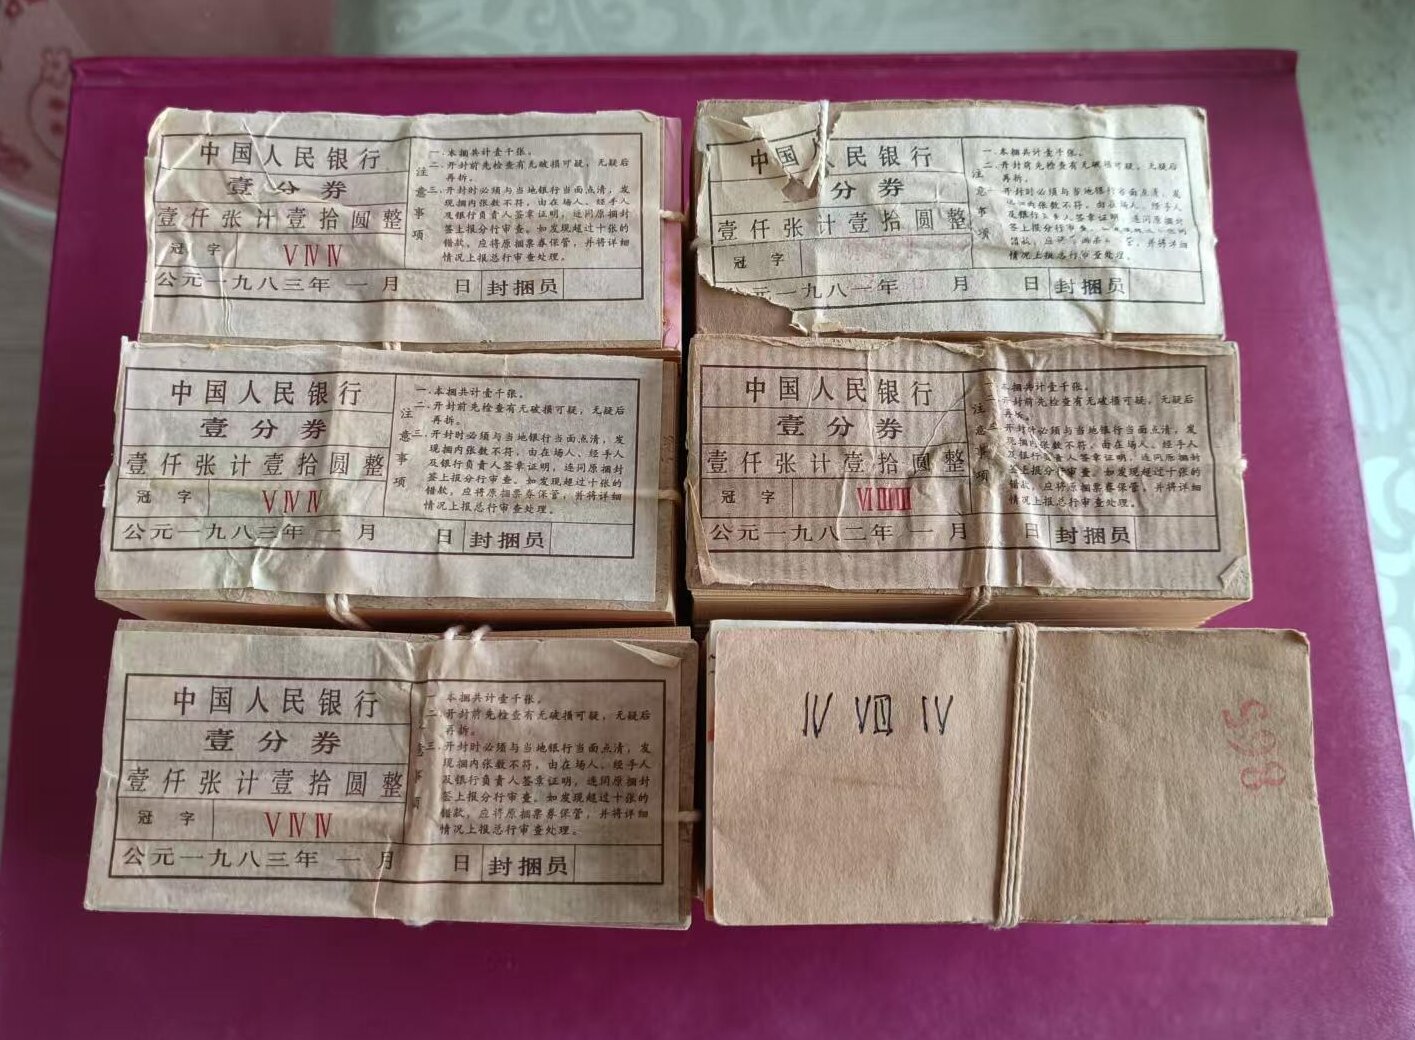 中国人民银行
壹分券
壹仟张计壹拾圆整
冠字 Ⅴ Ⅳ Ⅳ
公元一九八三年一月 日 封捆员
注意事项
一.本捆共计壹千张。
二.开封前先检查有无破损可疑，无疑后
再拆。
三.开封时必须与当地银行当面点清，发
现捆内张数不符，由在场人、经手人
及银行负责人签章证明，连同原捆封
签上报分行审查。如发现超过十张的
错款，应将原捆票券保管，并将详细
情况上报总行审查处理。
中国人民银行
分券
壹仟张计壹拾圆整
冠字
公元一九八一年 月 日 封捆员
注意事项
一.本捆共计壹千张。
二.开封前先检查有无破损可疑，无疑后
再拆。
开封时必须与当地银行当面点清，发
现捆内张数不符，由在场人、经手人
及银行负责人签章证明，连同原捆封
签上报分行审查。
错款，应将 保管，并将详细
情况上报总行审查处理。
中国人民银行
壹分券
壹仟张计壹拾圆整
冠字 Ⅴ Ⅳ Ⅳ
公元一九八三年一月 日 封捆员
注意事项
一.本捆共计壹千张。
二.开封前先检查有无破损可疑，无疑后
再拆。
三.开封时必须与当地银行当面点清，发
现捆内张数不符，由在场人、经手人
及银行负责人签章证明，连同原捆封
签上报分行审查。如发现超过十张的
错款，应将原捆票券保管，并将详细
情况上报总行审查处理。
中国人民银行
壹分券
壹仟张计壹拾圆整
冠字 Ⅵ Ⅲ Ⅲ
公元一九八二年一月 日 封捆员
注意事项
一.本捆共计壹千张。
二.开封前先检查有无破损可疑，无疑后
再拆。
三.开封时必须与当地银行当面点清，发
现捆内张数不符，由在场人、经手人
及银行负责人签章证明，连同原捆封
签上报分行审查。如发现超过十张的
错款，应将原捆票券保管，并将详细
情况上报总行审查处理。
中国人民银行
壹分券
壹仟张计壹拾圆整
冠字 Ⅴ Ⅳ Ⅳ
公元一九八三年一月 日 封捆员
注意事项
一.本捆共计壹千张。
二.开封前先检查有无破损可疑，无疑后
再拆。
三.开封时必须与当地银行当面点清，发
现捆内张数不符，由在场人、经手人
及银行负责人签章证明，连同原捆封
签上报分行审查。如发现超过十张的
错款，应将原捆票券保管，并将详细
情况上报总行审查处理。
Ⅳ Ⅶ Ⅳ